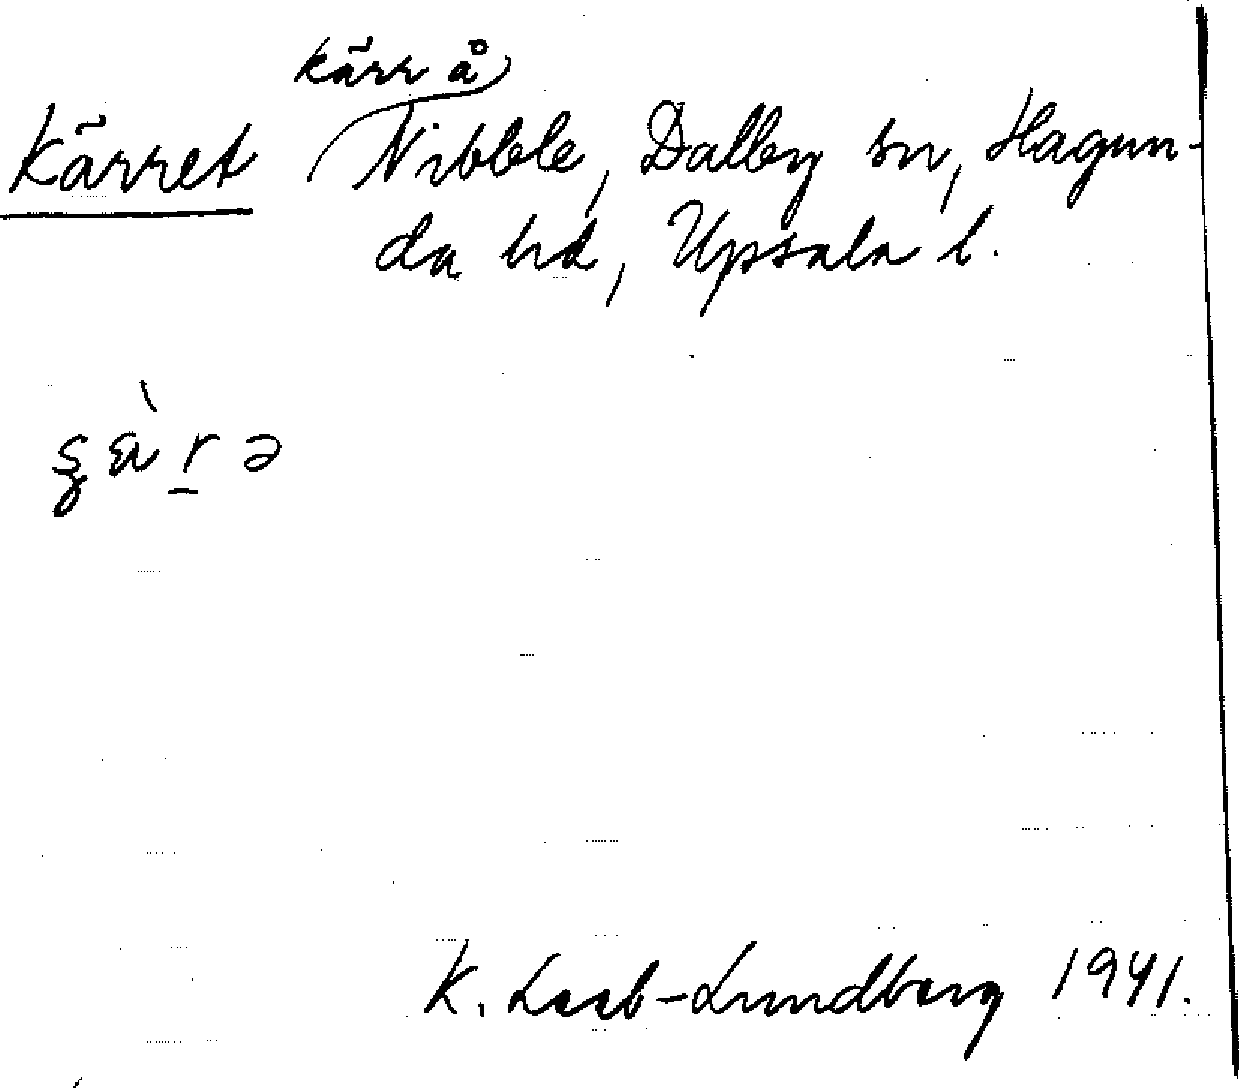 kärr å
Kärret Nibble, Dalby sn, Hagun-
da hd, Upsala l.
K. Laab-Lundberg 1941.